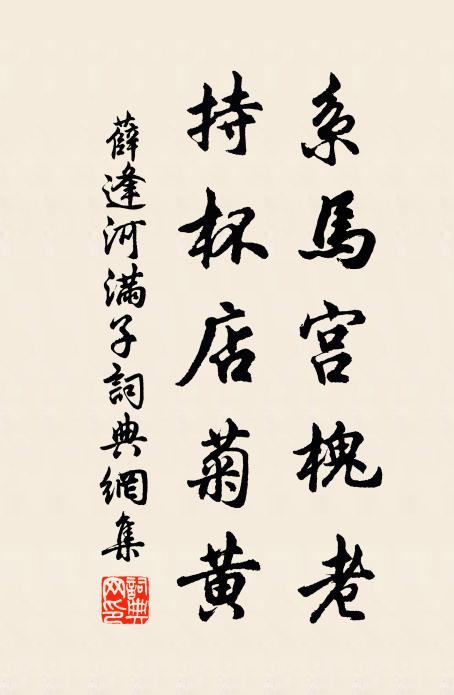 系馬宮槐老
持杯店菊黄
薛逢河滿子詞典網集
詞典網印